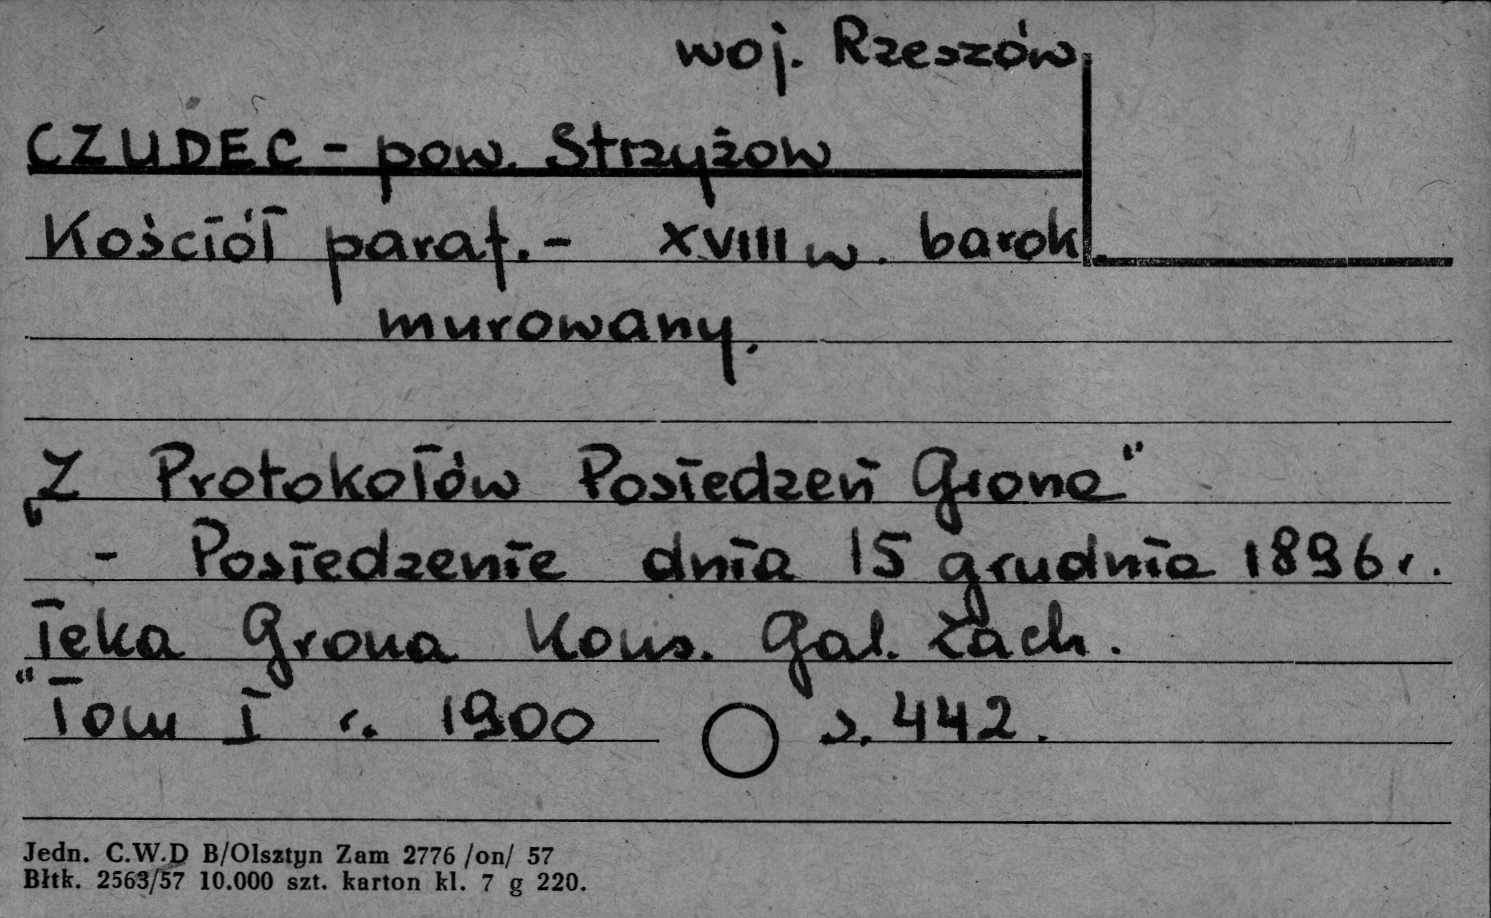 woj. Rzeszów
CZUDEC - pow. Strzyżow
Kościół paraf. - XVIII w. barok.
murowany.
„Z Protokołów Posiedzeń Grona"
- Posiedzenie dnia 15 grudnia 1896 r.
Teka Grona Kons. Gal. Zach.
"Tom I r. 1900 s. 442.
Jedn. C.W.D B/Olsztyn Zam 2776 /on/ 57
Błtk. 2563/57 10.000 szt. karton kl. 7 g 220.